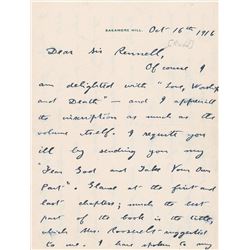 SAGAMORE HILL. Oct 16th 1916
[Rodd]
Dear Sir Rennell,
Of course I
am delighted with "Love, Worship
and Death" – and I appreciate
the inscription as much as the
volume itself. I requite you
ill by sending you my
"Fear God and Take Your Own
Part". Glance at the first and
last chapters; much the best
part of the book is the title,
which Mrs. Roosevelt suggested
to me. I have spoken to my